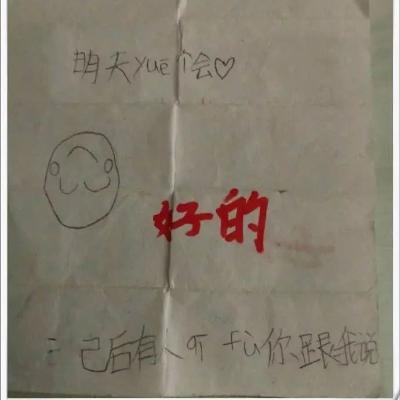 明天yuē个会♡
好的
己后有人qi fù你跟我说